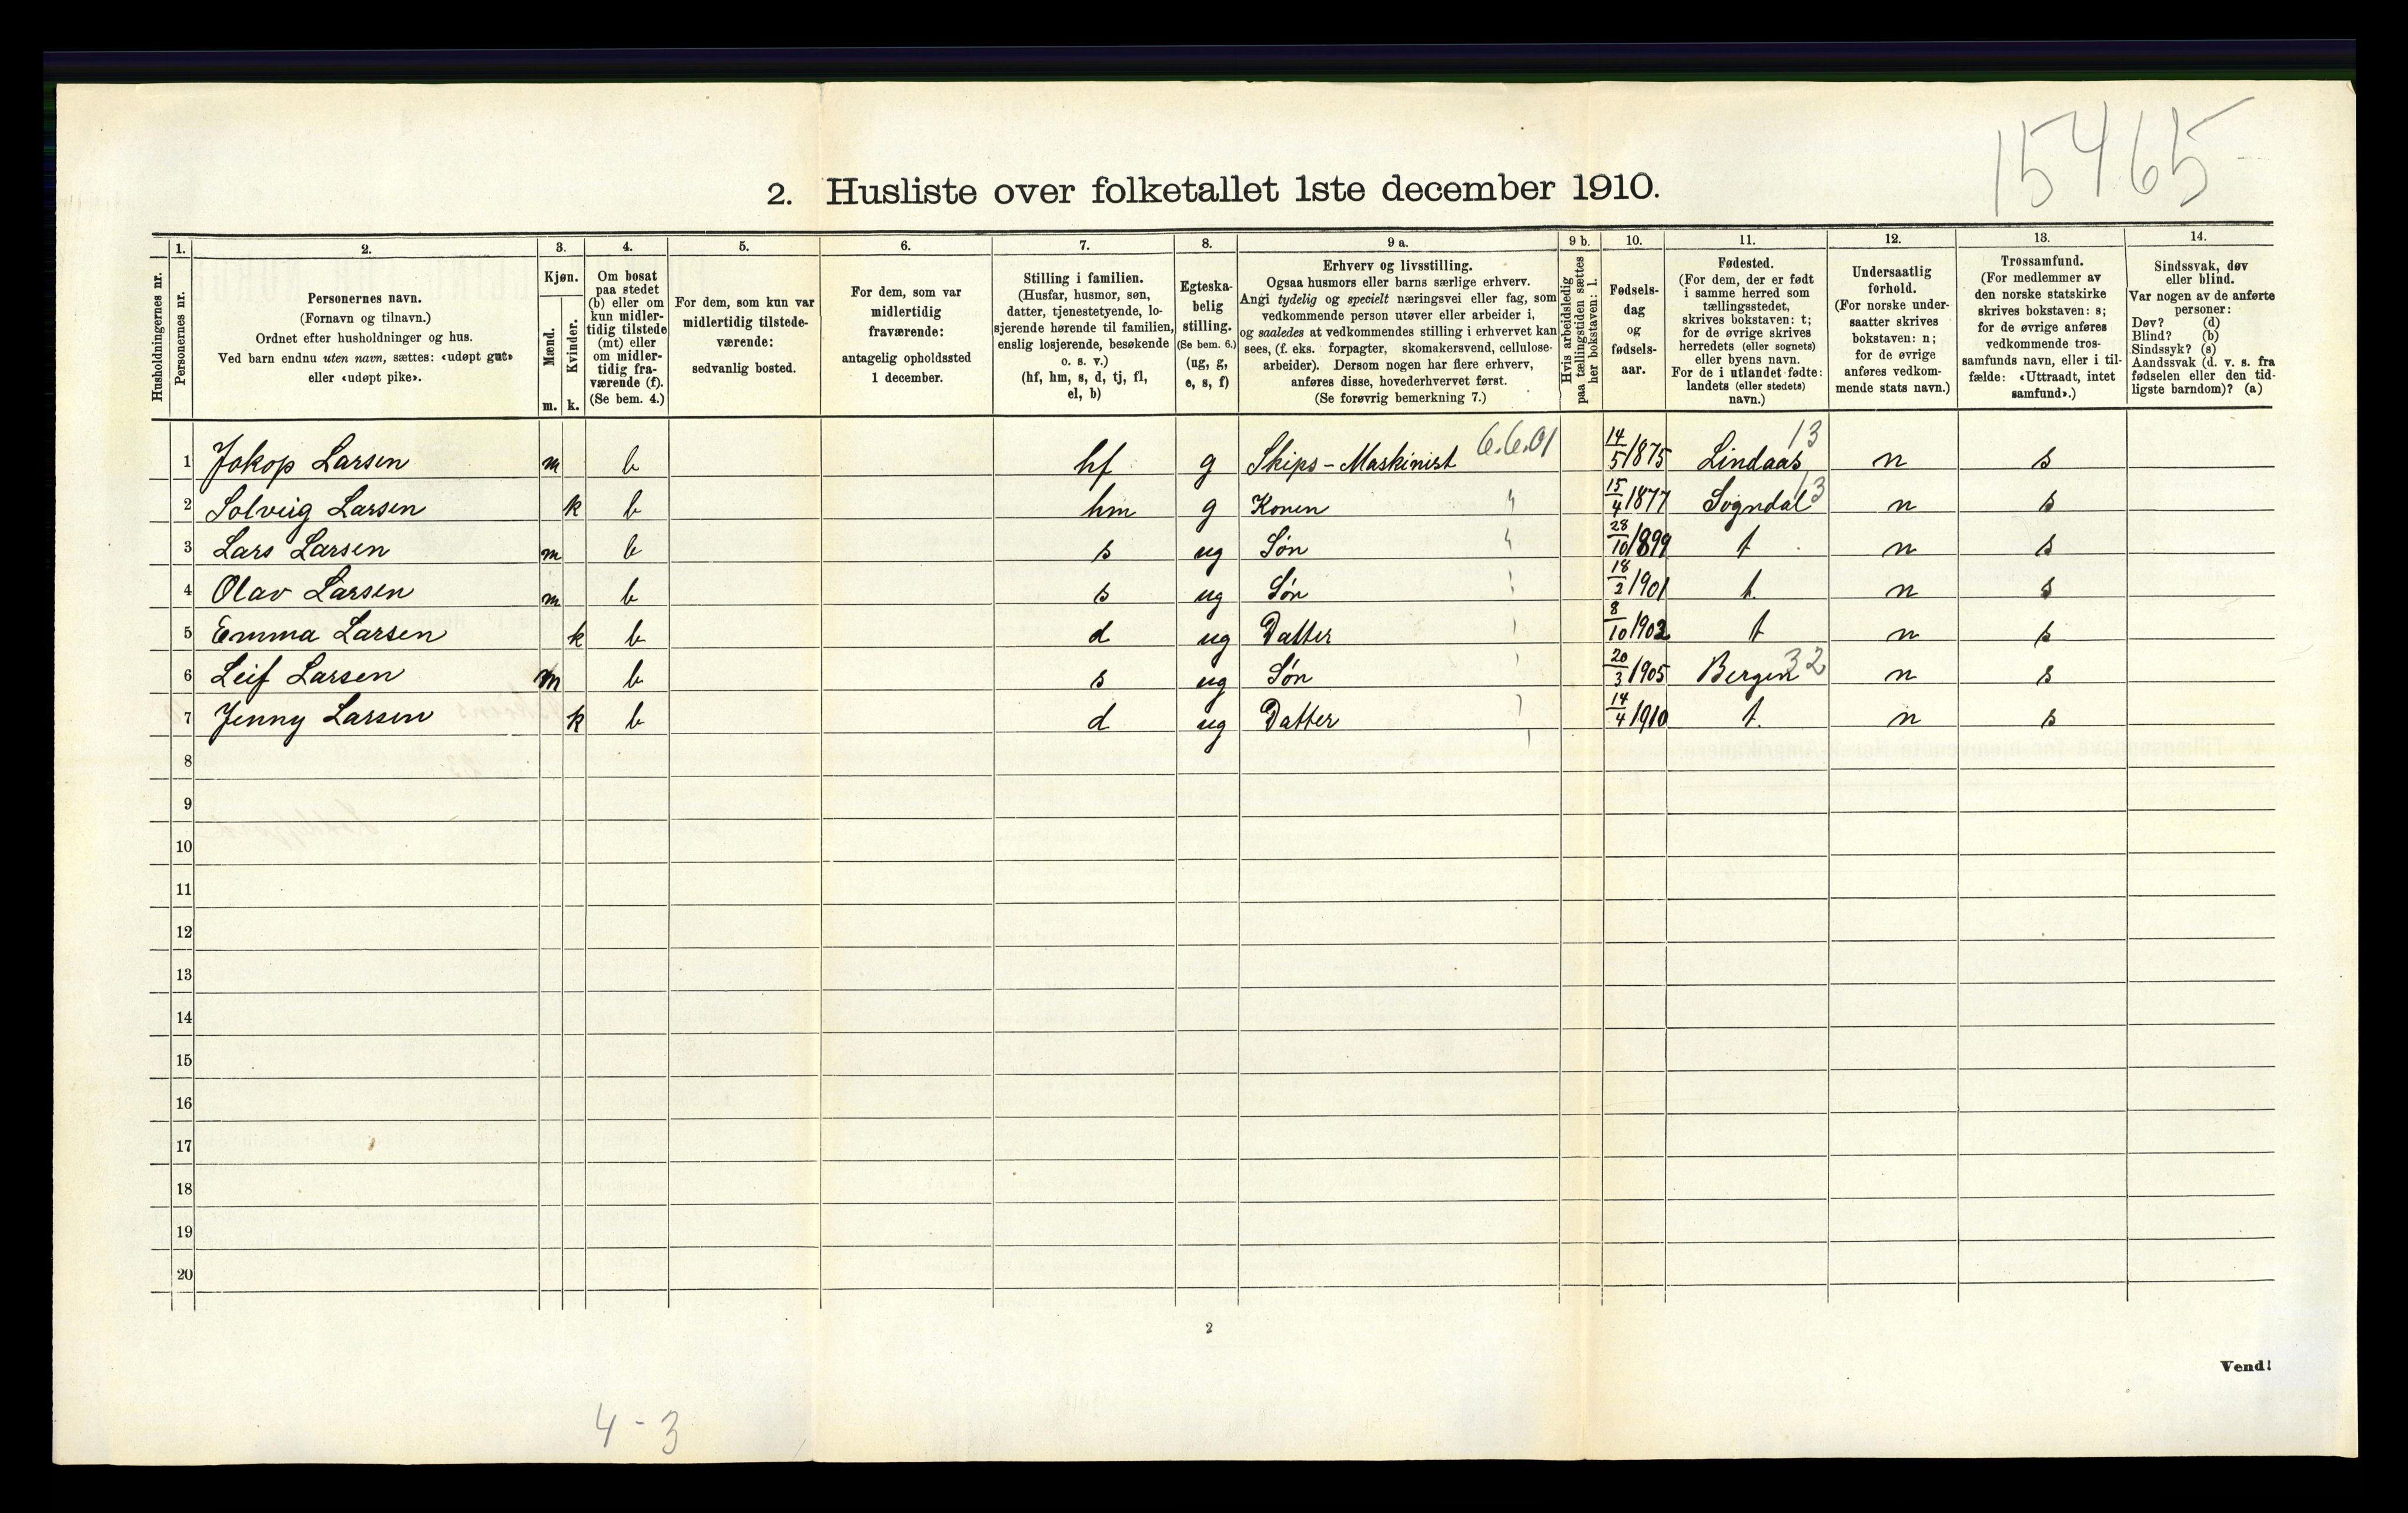 15465
2. Husliste over folketallet 1ste december 1910.
Husholdningernes nr.
1.
Personernes nr.
2.
Personernes navn.
(Fornavn og tilnavn.)
Ordnet efter husholdninger og hus.
Ved barn endnu uten navn, sættes: «udøpt gut»
eller «udøpt pike».
3.
Kjøn.
Mænd.
m.
Kvinder.
k.
4.
Om bosat
paa stedet
(b) eller om
kun midler-
tidig tilstede
(mt) eller
om midler-
tidig fra-
værende (f).
(Se bem. 4.)
5.
For dem, som kun var
midlertidig tilstede-
værende:
sedvanlig bosted.
6.
For dem, som var
midlertidig
fraværende:
antagelig opholdssted
1 december.
7.
Stilling i familien.
(Husfar, husmor, søn,
datter, tjenestetyende, lo-
sjerende hørende til familien,
enslig losjerende, besøkende
o. s. v.)
(hf, hm, s, d, tj, fl,
el, b)
8.
Egteska-
belig
stilling.
(Se bem. 6.)
(ug, g,
e, s, f)
9 a.
Erhverv og livsstilling.
Ogsaa husmors eller barns særlige erhverv.
Angi tydelig og specielt næringsvei eller fag, som
vedkommende person utøver eller arbeider i,
og saaledes at vedkommendes stilling i erhvervet kan
sees, (f. eks. forpagter, skomakersvend, cellulose-
arbeider). Dersom nogen har flere erhverv,
anføres disse, hovederhvervet først.
(Se forøvrig bemerkning 7.)
9 b.
Hvis arbeidsledig
paa tællingstiden sættes
her bokstaven: l.
10.
Fødsels-
dag
og
fødsels-
aar.
11.
Fødested.
(For dem, der er født
i samme herred som
tællingsstedet,
skrives bokstaven: t;
for de øvrige skrives
herredets (eller sognets)
eller byens navn.
For de i utlandet fødte:
landets (eller stedets)
navn.)
12.
Undersaatlig
forhold.
(For norske under-
saatter skrives
bokstaven: n;
for de øvrige
anføres vedkom-
mende stats navn.)
13.
Trossamfund.
(For medlemmer av
den norske statskirke
skrives bokstaven: s;
for de øvrige anføres
vedkommende tros-
samfunds navn, eller i til-
fælde: «Uttraadt, intet
samfund».)
14.
Sindssvak, døv
eller blind.
Var nogen av de anførte
personer:
Døv? (d)
Blind? (b)
Sindssyk? (s)
Aandssvak (d. v. s. fra
fødselen eller den tid-
ligste barndom)? (a)
1 Jakop Larsen m b hf g Skips-Maskinist 6.6.01 14/5 1875 Lindaas 13 n s
2 Solveig Larsen k b hm g Konen 15/4 1877 Sogndal 13 n s
3 Lars Larsen m b s ug Søn 28/10 1899 t n s
4 Olav Larsen m b s ug Søn 18/2 1901 t. n s
5 Emma Larsen k b d ug Datter 8/10 1902 t n s
6 Leif Larsen m b s ug Søn 20/3 1905 Bergen 32 n s
7 Jenny Larsen k b d ug Datter 14/4 1910 t. n s
8
9
10
11
12
13
14
15
16
17
18
19
20
2
Vend!
4-3